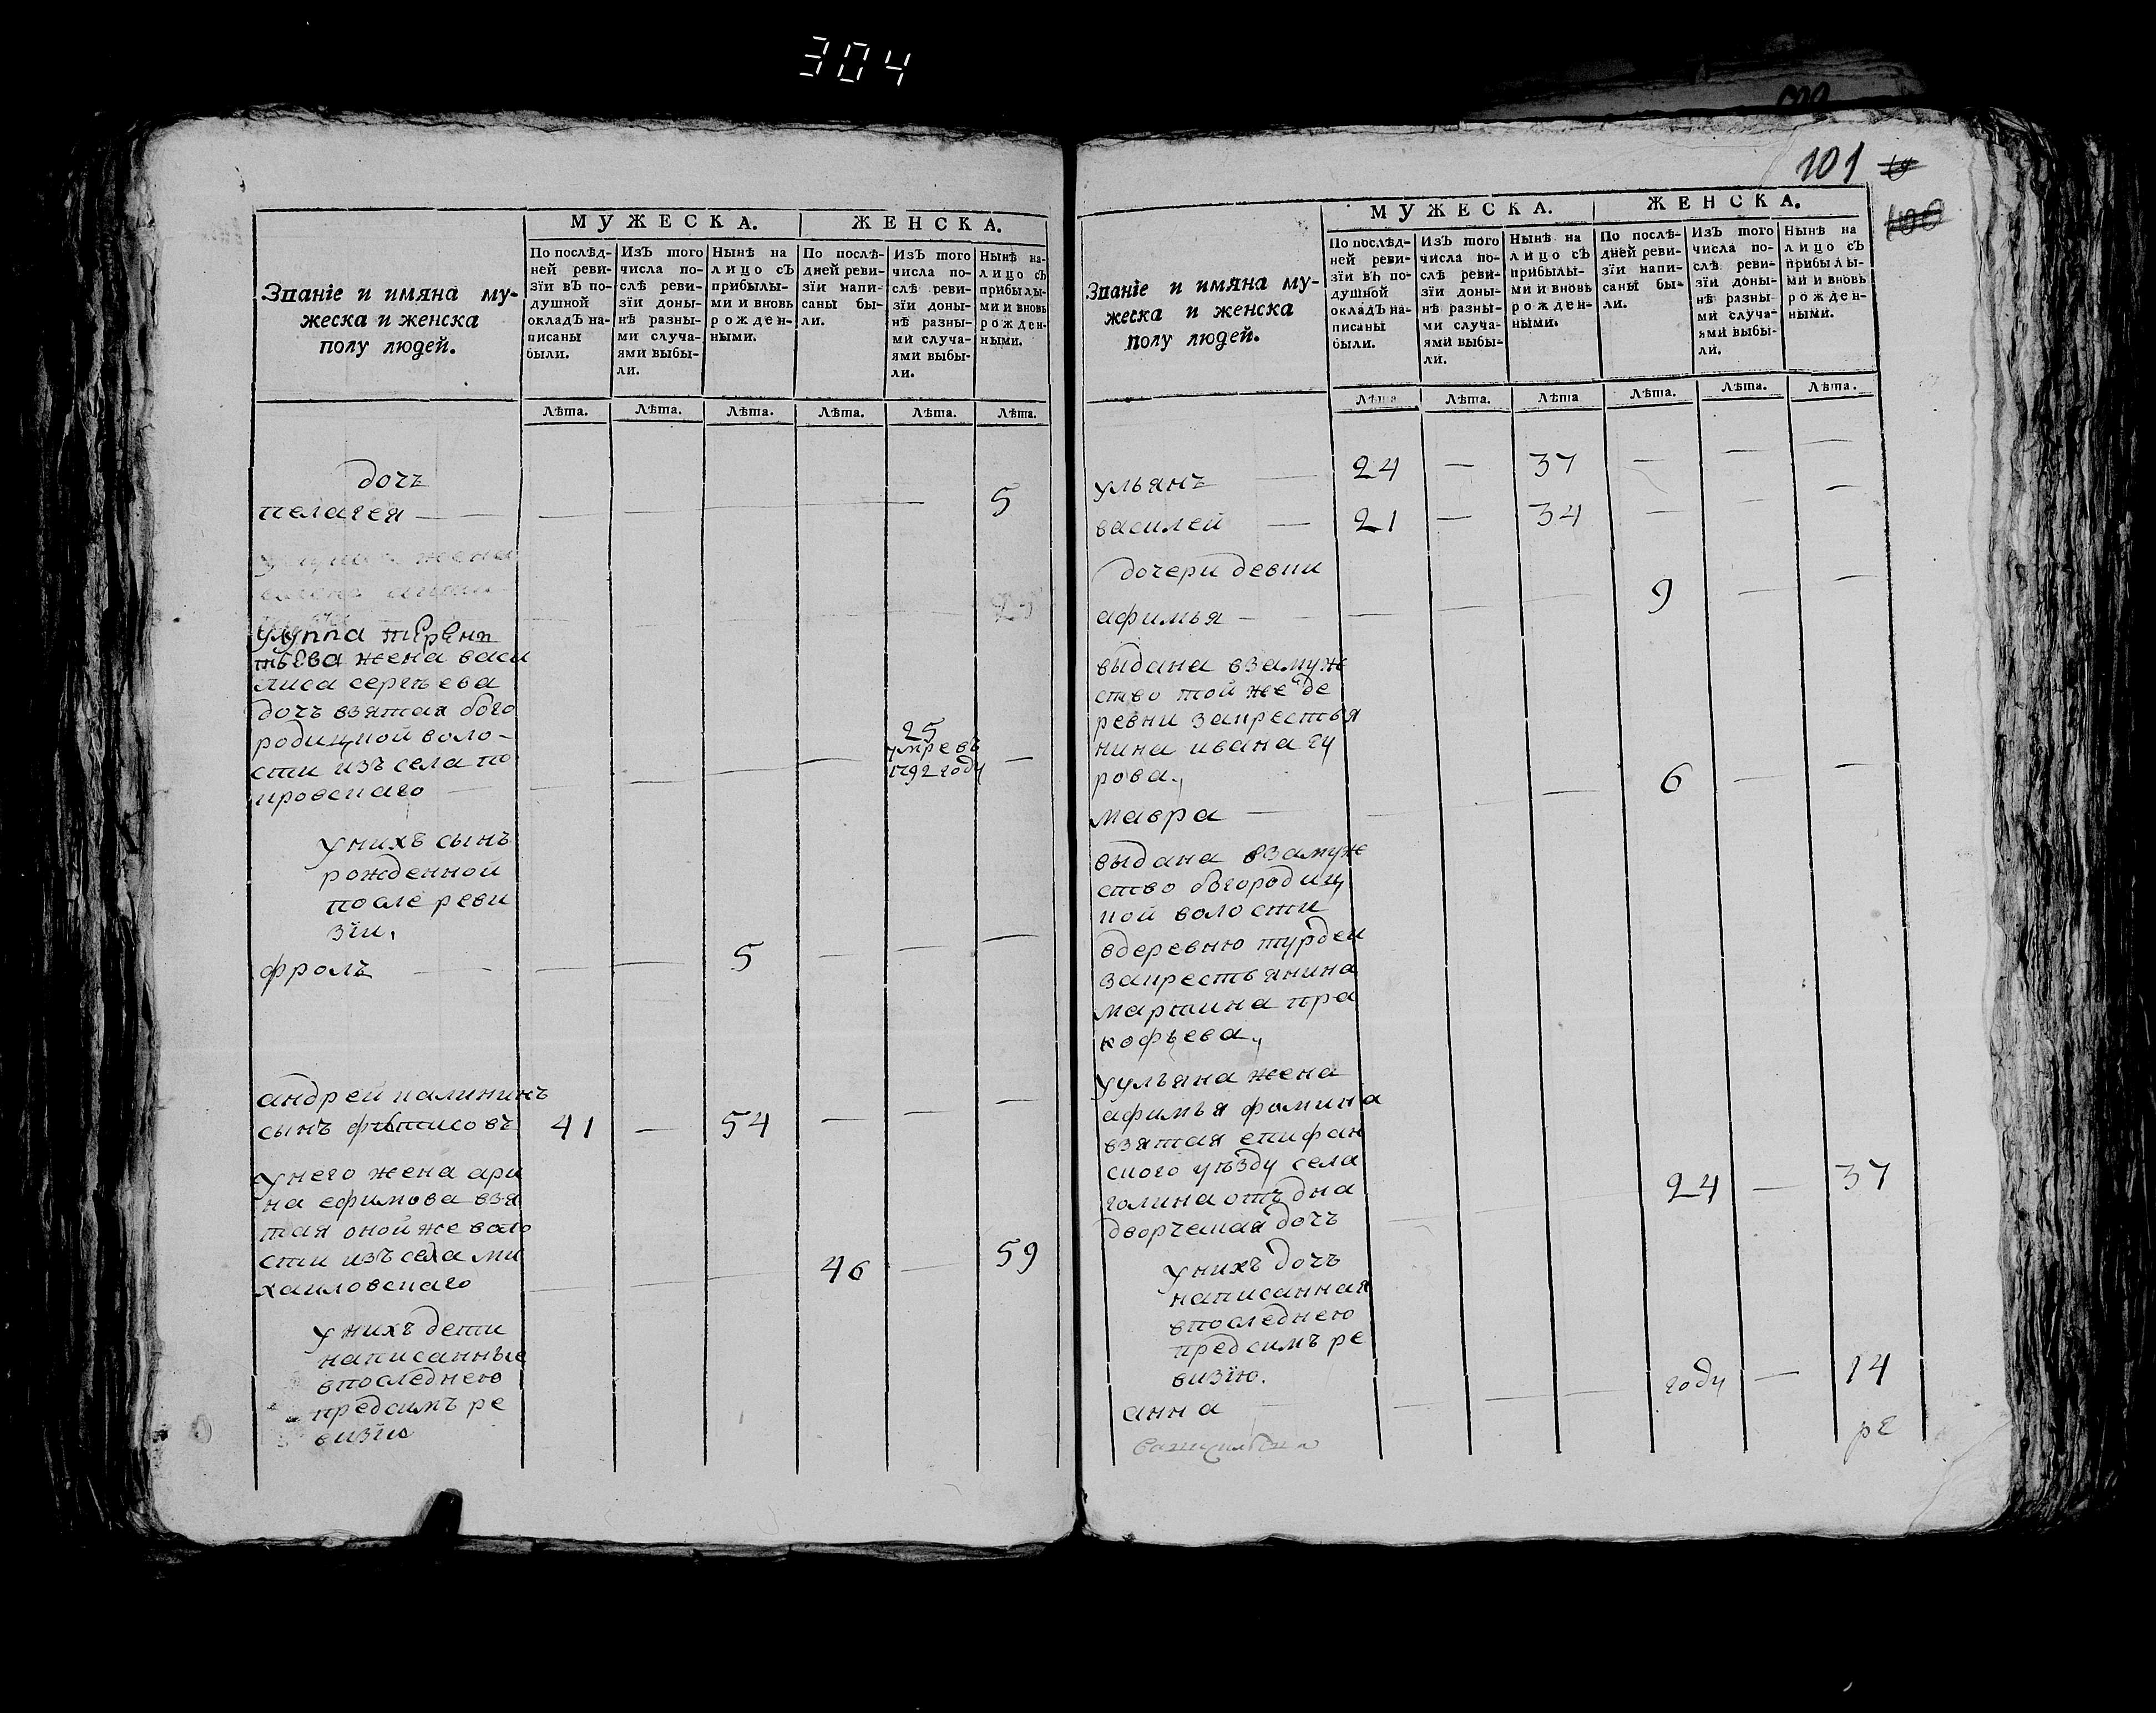 304
МУЖЕСКА. ЖЕНСКА.
Званіе и имяна му-
жеска и женска
полу людей.
По послѣд-
ней реви-
зїи въ по-
душной
окладъ на-
писаны
были.
Изъ того
числа по-
слѣ реви-
зїи доны-
нѣ разны-
ми случа-
ями выбы-
ли.
Нынѣ на
лицо съ
прибылы-
ми и вновь
рожден-
ными.
По послѣ-
дней реви-
зїи напи-
саны бы-
ли.
Изъ того
числа по-
слѣ реви-
зїи доны-
нѣ разны-
ми случа-
ями выбы-
ли.
Нынѣ на-
лицо съ
прибылы-
ми и вновь
рожден-
ными.
Лѣта. Лѣта. Лѣта. Лѣта. Лѣта. Лѣта.
дочь
пелагея — — — — — — 5
жена
улуппа терен
тьева жена васи
лиса сергѣева
дочь взятая бого
родицкой воло-
сти изъ села по
кровскаго — — — — — 25 умре въ 1792 году —
у нихъ сынъ
рожденной
после реви
зїи.
фролъ — — — 5 — — —
андрей калининъ
сынъ фетисовъ 41 — 54 — — —
у него жена ари
на ефимова взя
тая оной же воло
сти изъ села ми
хаиловскаго — — — 46 — 59
у нихъ дети
написанные
впоследнею
предсимъ ре
визїю
101
100
МУЖЕСКА. ЖЕНСКА.
Званіе и имяна му-
жеска и женска
полу людей.
По послѣд-
ней реви-
зїи въ по-
душной
окладъ на-
писаны
были.
Изъ того
числа по-
слѣ реви-
зїи доны-
нѣ разны-
ми случа-
ями выбы-
ли.
Нынѣ на
лицо съ
прибылы-
ми и вновь
рожден-
ными.
По послѣ-
дней реви-
зїи напи-
саны бы-
ли.
Изъ того
числа по-
слѣ реви-
зїи доны-
нѣ разны-
ми случа-
ями выбы-
ли.
Нынѣ на
лицо съ
прибылы-
ми и вновь
рожден-
ными.
Лѣта Лѣта. Лѣта Лѣта. Лѣта. Лѣта.
ульянъ — 24 — 37 — — —
василей — 21 — 34 — — —
дочери девки
афимья — — — — 9 — —
выдана взамуже
ство той же де
ревни закрестья
нина ивана гу
рова.,
мавра — — — — 6 — —
выдана взамуже
ство богородиц
кой волости
вдеревню турдеи
закрестьянина
мартина пра
кофьева.,
у ульяна жена
афимья фомина
взятая епифан
ского уѣзду села
голина отъ дна
дворческая дочь — — — 24 — 37
у нихъ дочь
написанная
впоследнею
предсимъ ре
визїю.
анна — — — — году — 14
ре